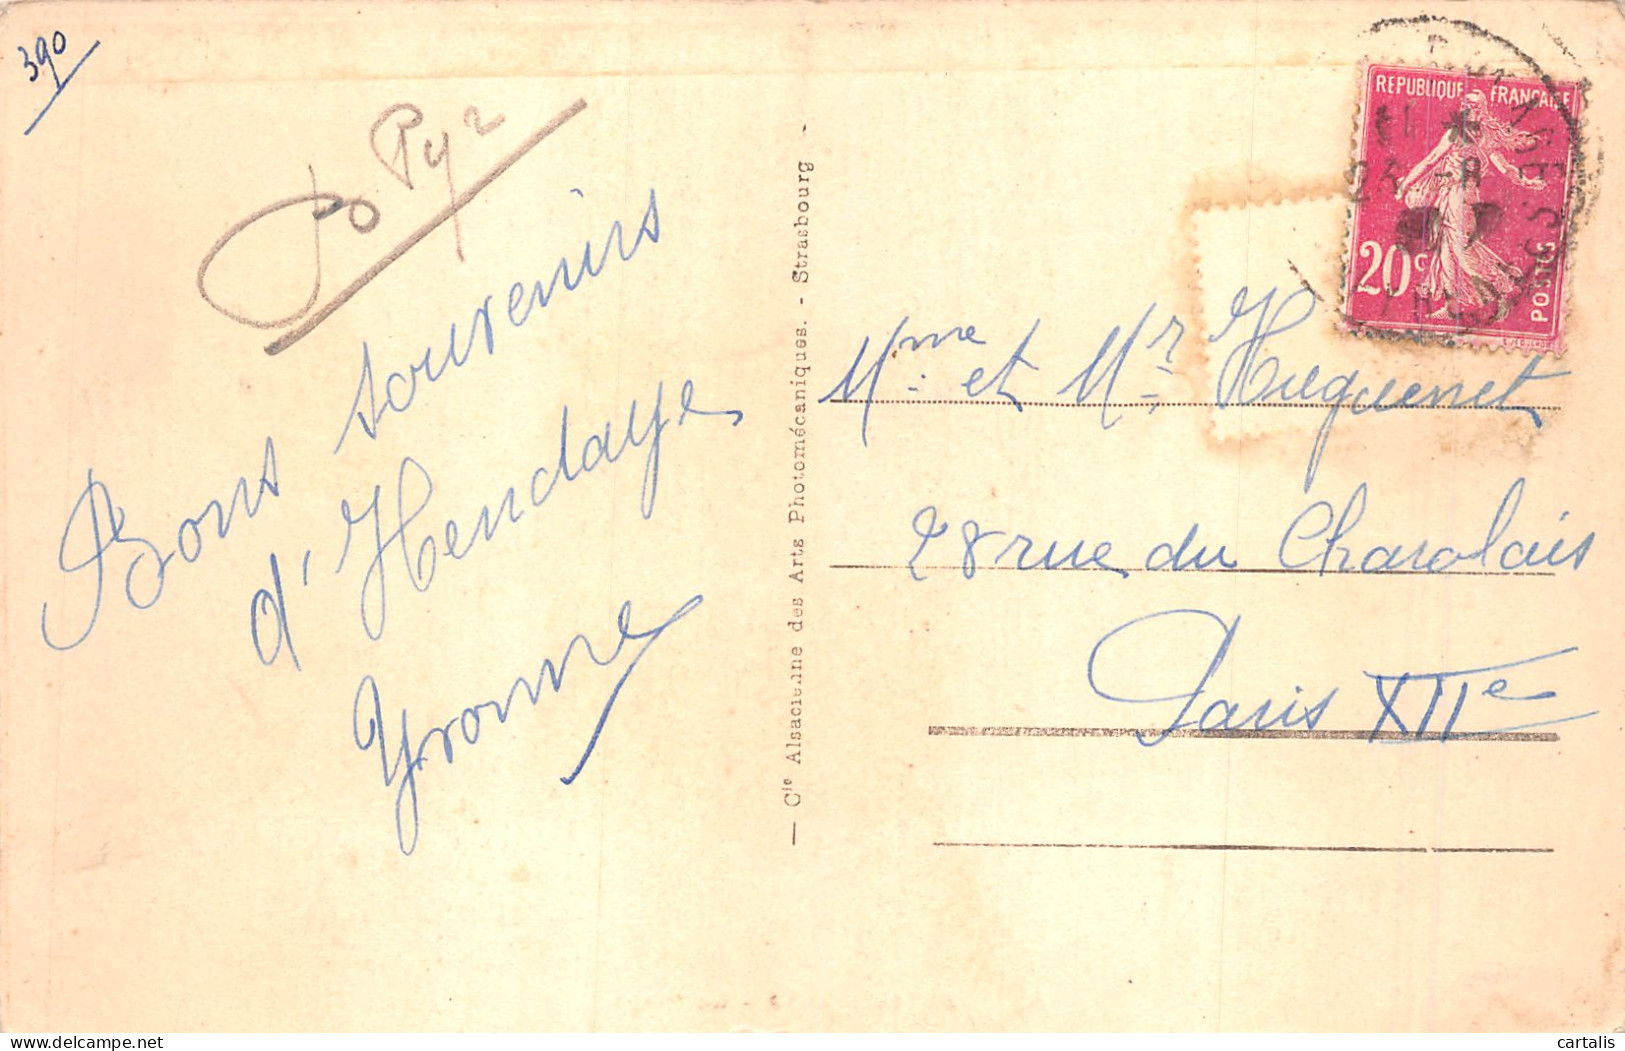 390
Py 2
Bons souvenirs
d'Hendaye
Yvonne
— Cie Alsacienne des Arts Photomécaniques. - Strasbourg -
REPUBLIQUE FRANÇAISE
20c
POSTES
Mme et Mr Huguenet
28 rue du Charolais
Paris XIIe
delcampe.net
cartalis